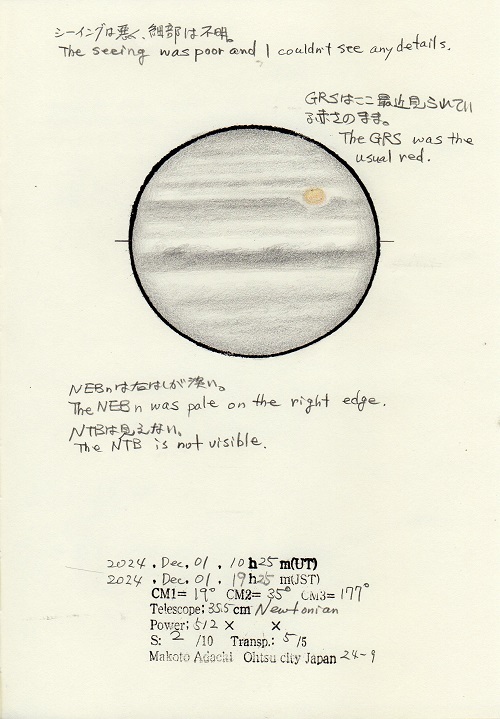 シーイングは悪く、細部は不明。
The seeing was poor and I couldn't see any details.
GRSはここ最近見られてい
る赤さのまま。
The GRS was the
usual red.
NEBnは右はしが淡い。
The NEB n was pale on the right edge.
NTBは見えない。
The NTB is not visible.
2024 , Dec, 01 , 10 h 25 m(UT)
2024 , Dec, 01 , 19 h 25 m(JST)
CM1= 19° CM2= 35° CM3= 177°
Telescope; 35.5 cm Newtonian
Power; 512 × ×
S: 2 /10 Transp.: 5 /5
Makoto Adachi Ohtsu city Japan 24-9